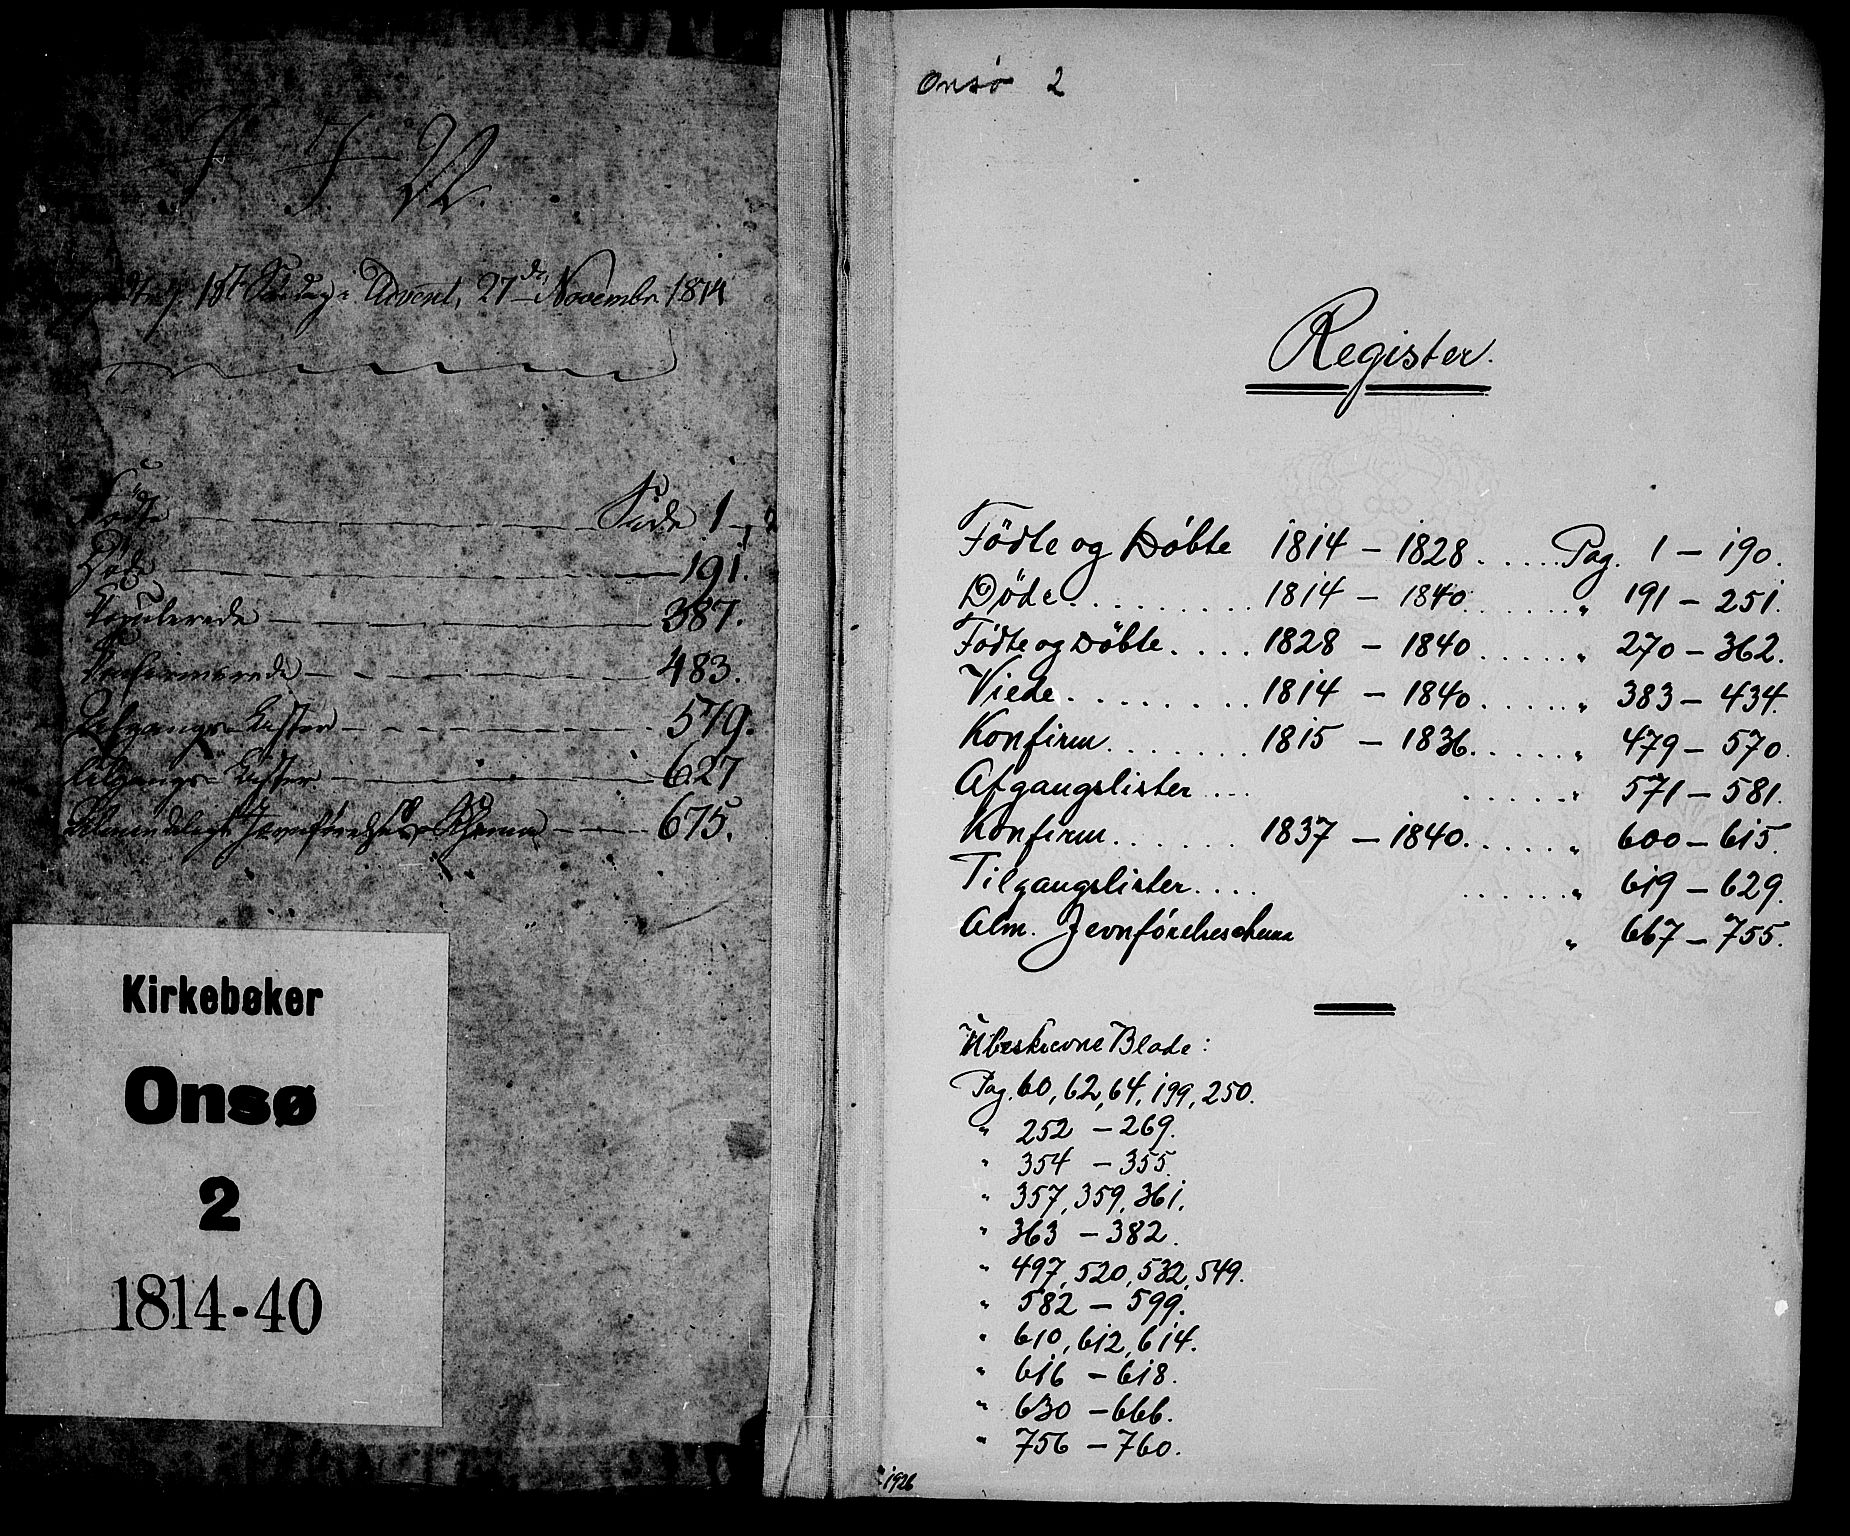 J. J. N.
1st Søndag i Advent, 27de Novembr. 1814
Födte Side 1
Döde 191.
Copulerede 387.
Confirmerede 483.
Afgangs-Lister 579.
Tilgangs-Lister 627
Almindeligt Jevnførelses-Schema 675.
Kirkebøker
Onsø
2
1814-40
Onsö 2
Register.
Födte og Döbte 1814 - 1828 ..... Pag. 1 - 190.
Döde ......... 1814 - 1840 ...... " 191 - 251.
Födte og Döbte .... 1828 - 1840 ..... " 270 - 362.
Viede ........ 1814 - 1840 ..... " 383 - 434.
Konfirm ...... 1815 - 1836 ..... " 479 - 570.
Afgangslister ... ..... " 571 - 581.
Konfirm ...... 1837 - 1840 ..... " 600 - 615.
Tilgangslister .... ...... " 619 - 629.
Alm. Jevnförelseschema " 667 - 755.
Ubeskrevne Blade:
Pag. 60, 62, 64, 199, 250.
" 252 - 269.
" 354 - 355.
" 357, 359, 361.
" 363 - 382.
" 497, 520, 532, 549.
" 582 - 599.
" 610, 612, 614.
" 616 - 618.
" 630 - 666.
" 756 - 760.
1926